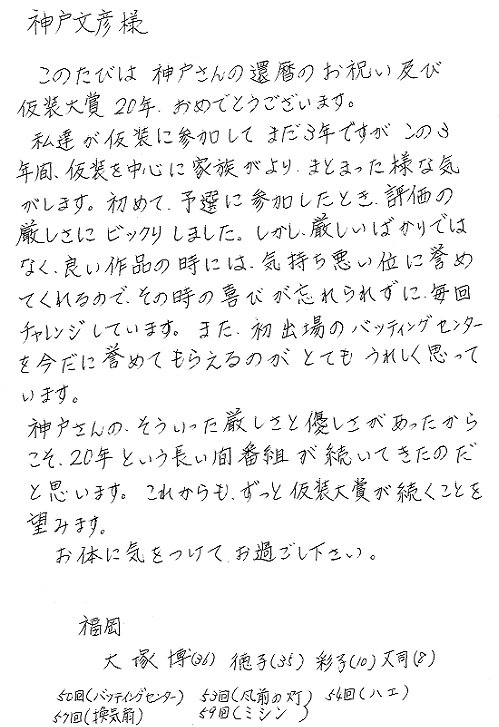 神戸文彦様
このたびは 神戸さんの還暦のお祝い及び
仮装大賞20年、おめでとうございます。
私達が仮装に参加してまだ3年ですが この3
年間、仮装を中心に家族がより、まとまった様な気
がします。初めて、予選に参加したとき、評価の
厳しさにビックリしました。しかし、厳しいばかりでは
なく、良い作品の時には、気持ち悪い位に誉め
てくれるので、その時の喜びが忘れられずに、毎回
チャレンジしています。また、初出場のバッティングセンター
を今だに誉めてもらえるのがとてもうれしく思って
います。
神戸さんの、そういった厳しさと優しさがあったから
こそ、20年という長い間番組が続いてきたのだ
と思います。これからも、ずっと仮装大賞が続くことを
望みます。
お体に気をつけて、お過ごし下さい。
福岡
大塚 博(36) 徳子(35) 彩子(10) 司(8)
50回(バッティングセンター) 53回(風前の灯) 54回(ハエ)
57回(換気扇) 59回(ミシン)